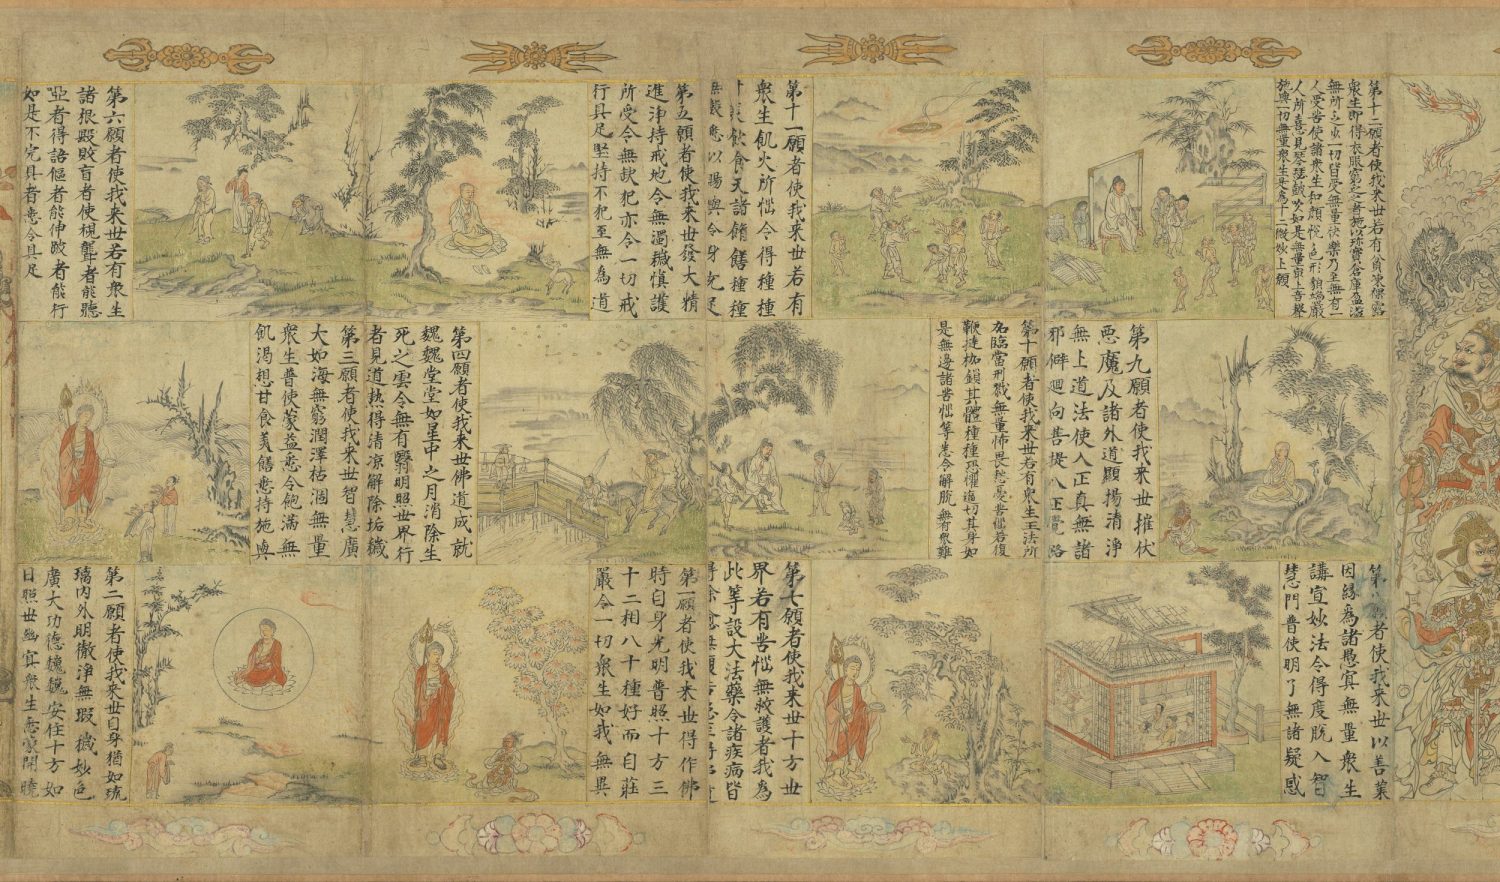 第十二願者使我来世若有貧凍裸露
衆生即得衣服窮乏之者施以珎寶倉庫盈溢
無所乏少一切皆受無量快樂乃至無有一
人受苦使諸衆生和顔悅色形貌端嚴
人所喜見琴瑟鼓吹如是無量東上音聲
施與一切無量衆生是為十二微妙上願
第十一願者使我来世若有
衆生飢火所惱令得種種
飲食天諸餚饍種種
無數悉以賜與令身充足
第五願者使我来世發大精
進淨持戒地令無濁穢慎護
所受令無缺犯亦令一切戒
行具足堅持不犯至無為道
第六願者使我来世若有衆生
諸根毀敗盲者使視聾者能聽
瘂者得語傴者能伸跛者能行
如是不完具者悉令具足
第九願者使我来世摧伏
悪魔及諸外道顯揚清淨
無上道法使入正真無諸
邪僻迴向菩提八正覺路
第十願者使我来世若有衆生王法所
加臨當刑戮無量怖畏愁憂苦惱若復
鞭撻枷鎖其體種種恐懼逼切其身如
是無邊諸苦惱等悉令解脫無有衆難
第四願者使我来世佛道成就
魏魏堂堂如星中之月消除生
死之雲令無有翳明照世界行
者見道熱得清凉解除垢穢
第三願者使我来世智慧廣
大如海無窮潤澤枯涸無量
衆生普使蒙益悉令飽滿無
飢渴想甘食美饍悉持施與
第者使我来世以善業
因緣為諸愚冥無量衆生
講宣妙法令得度脫入智
慧門普使明了無諸疑惑
第七願者使我来世十方世
界若有苦惱無救護者我為
此等設大法藥令諸疾病皆
得除愈無復苦
第一願者使我来世得作佛
時自身光明普照十方三
十二相八十種好而自莊
嚴令一切衆生如我無異
第二願者使我来世自身猶如琉
璃内外明徹淨無瑕穢妙色
廣大功德魏魏安住十方如
日照世幽冥衆生悉蒙開曉